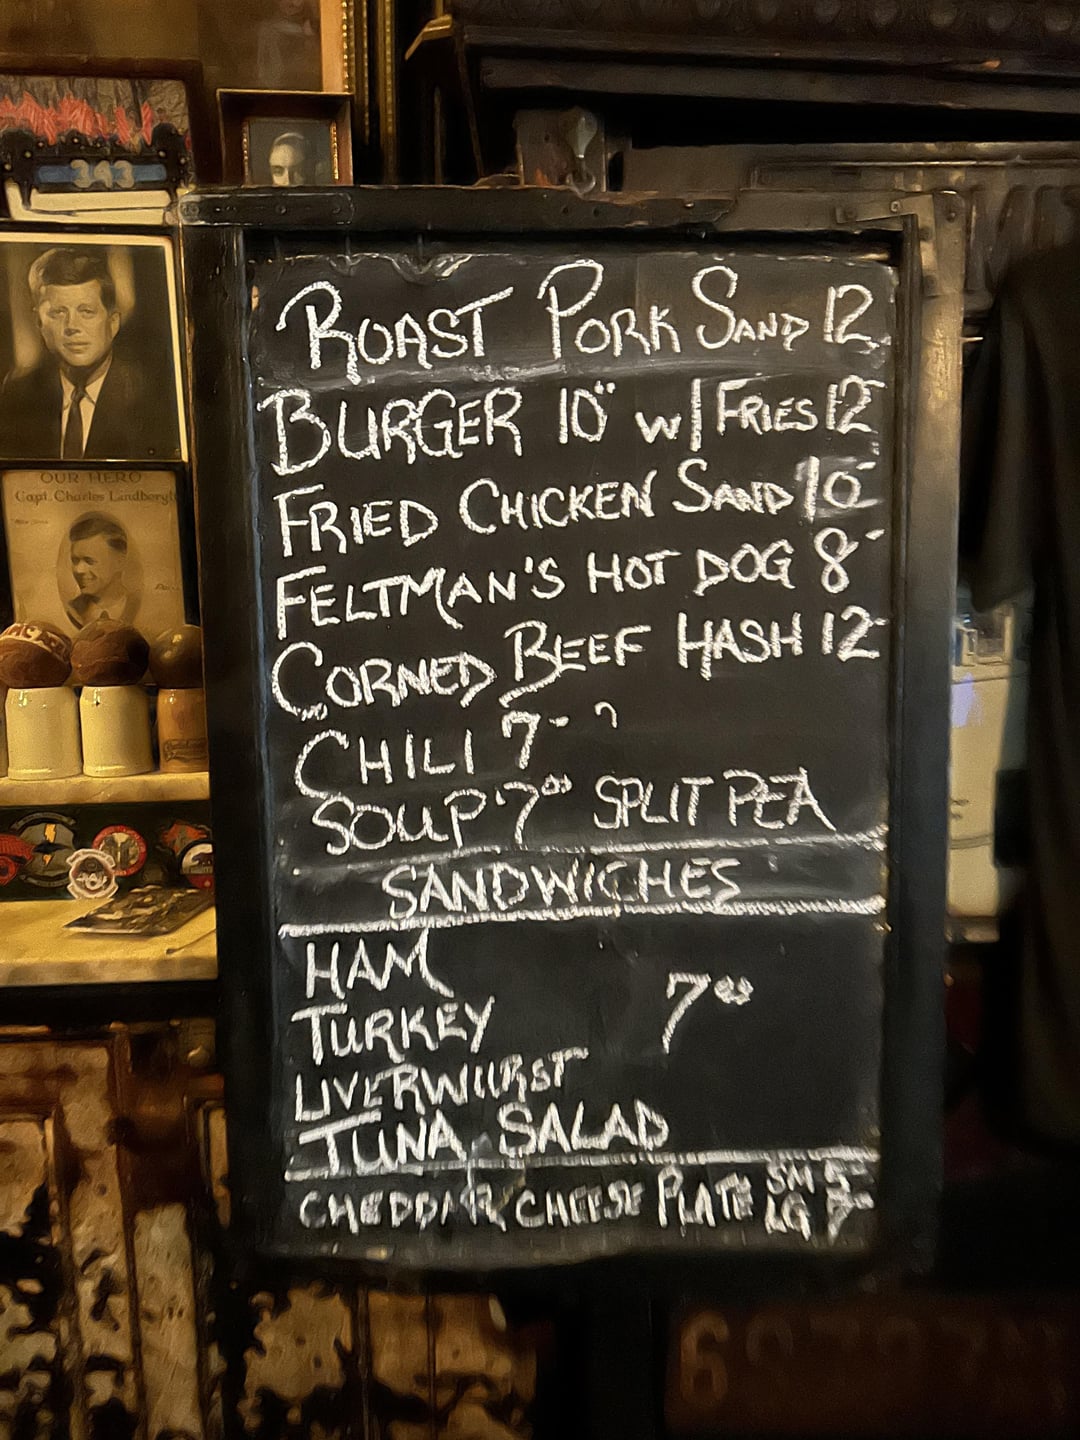 343
OUR HERO
Capt. Charles Lindbergh
ROAST PORK SAND 12
BURGER 10" w/ FRIES 12
FRIED CHICKEN SAND 10
FELTMAN'S HOT DOG 8
CORNED BEEF HASH 12
CHILI 7
SOUP 7⁰⁰ SPLIT PEA
SANDWICHES
HAM
7⁰⁰
TURKEY
LIVERWURST
TUNA SALAD
CHEDDAR CHEESE PLATE SM 5
LG 7